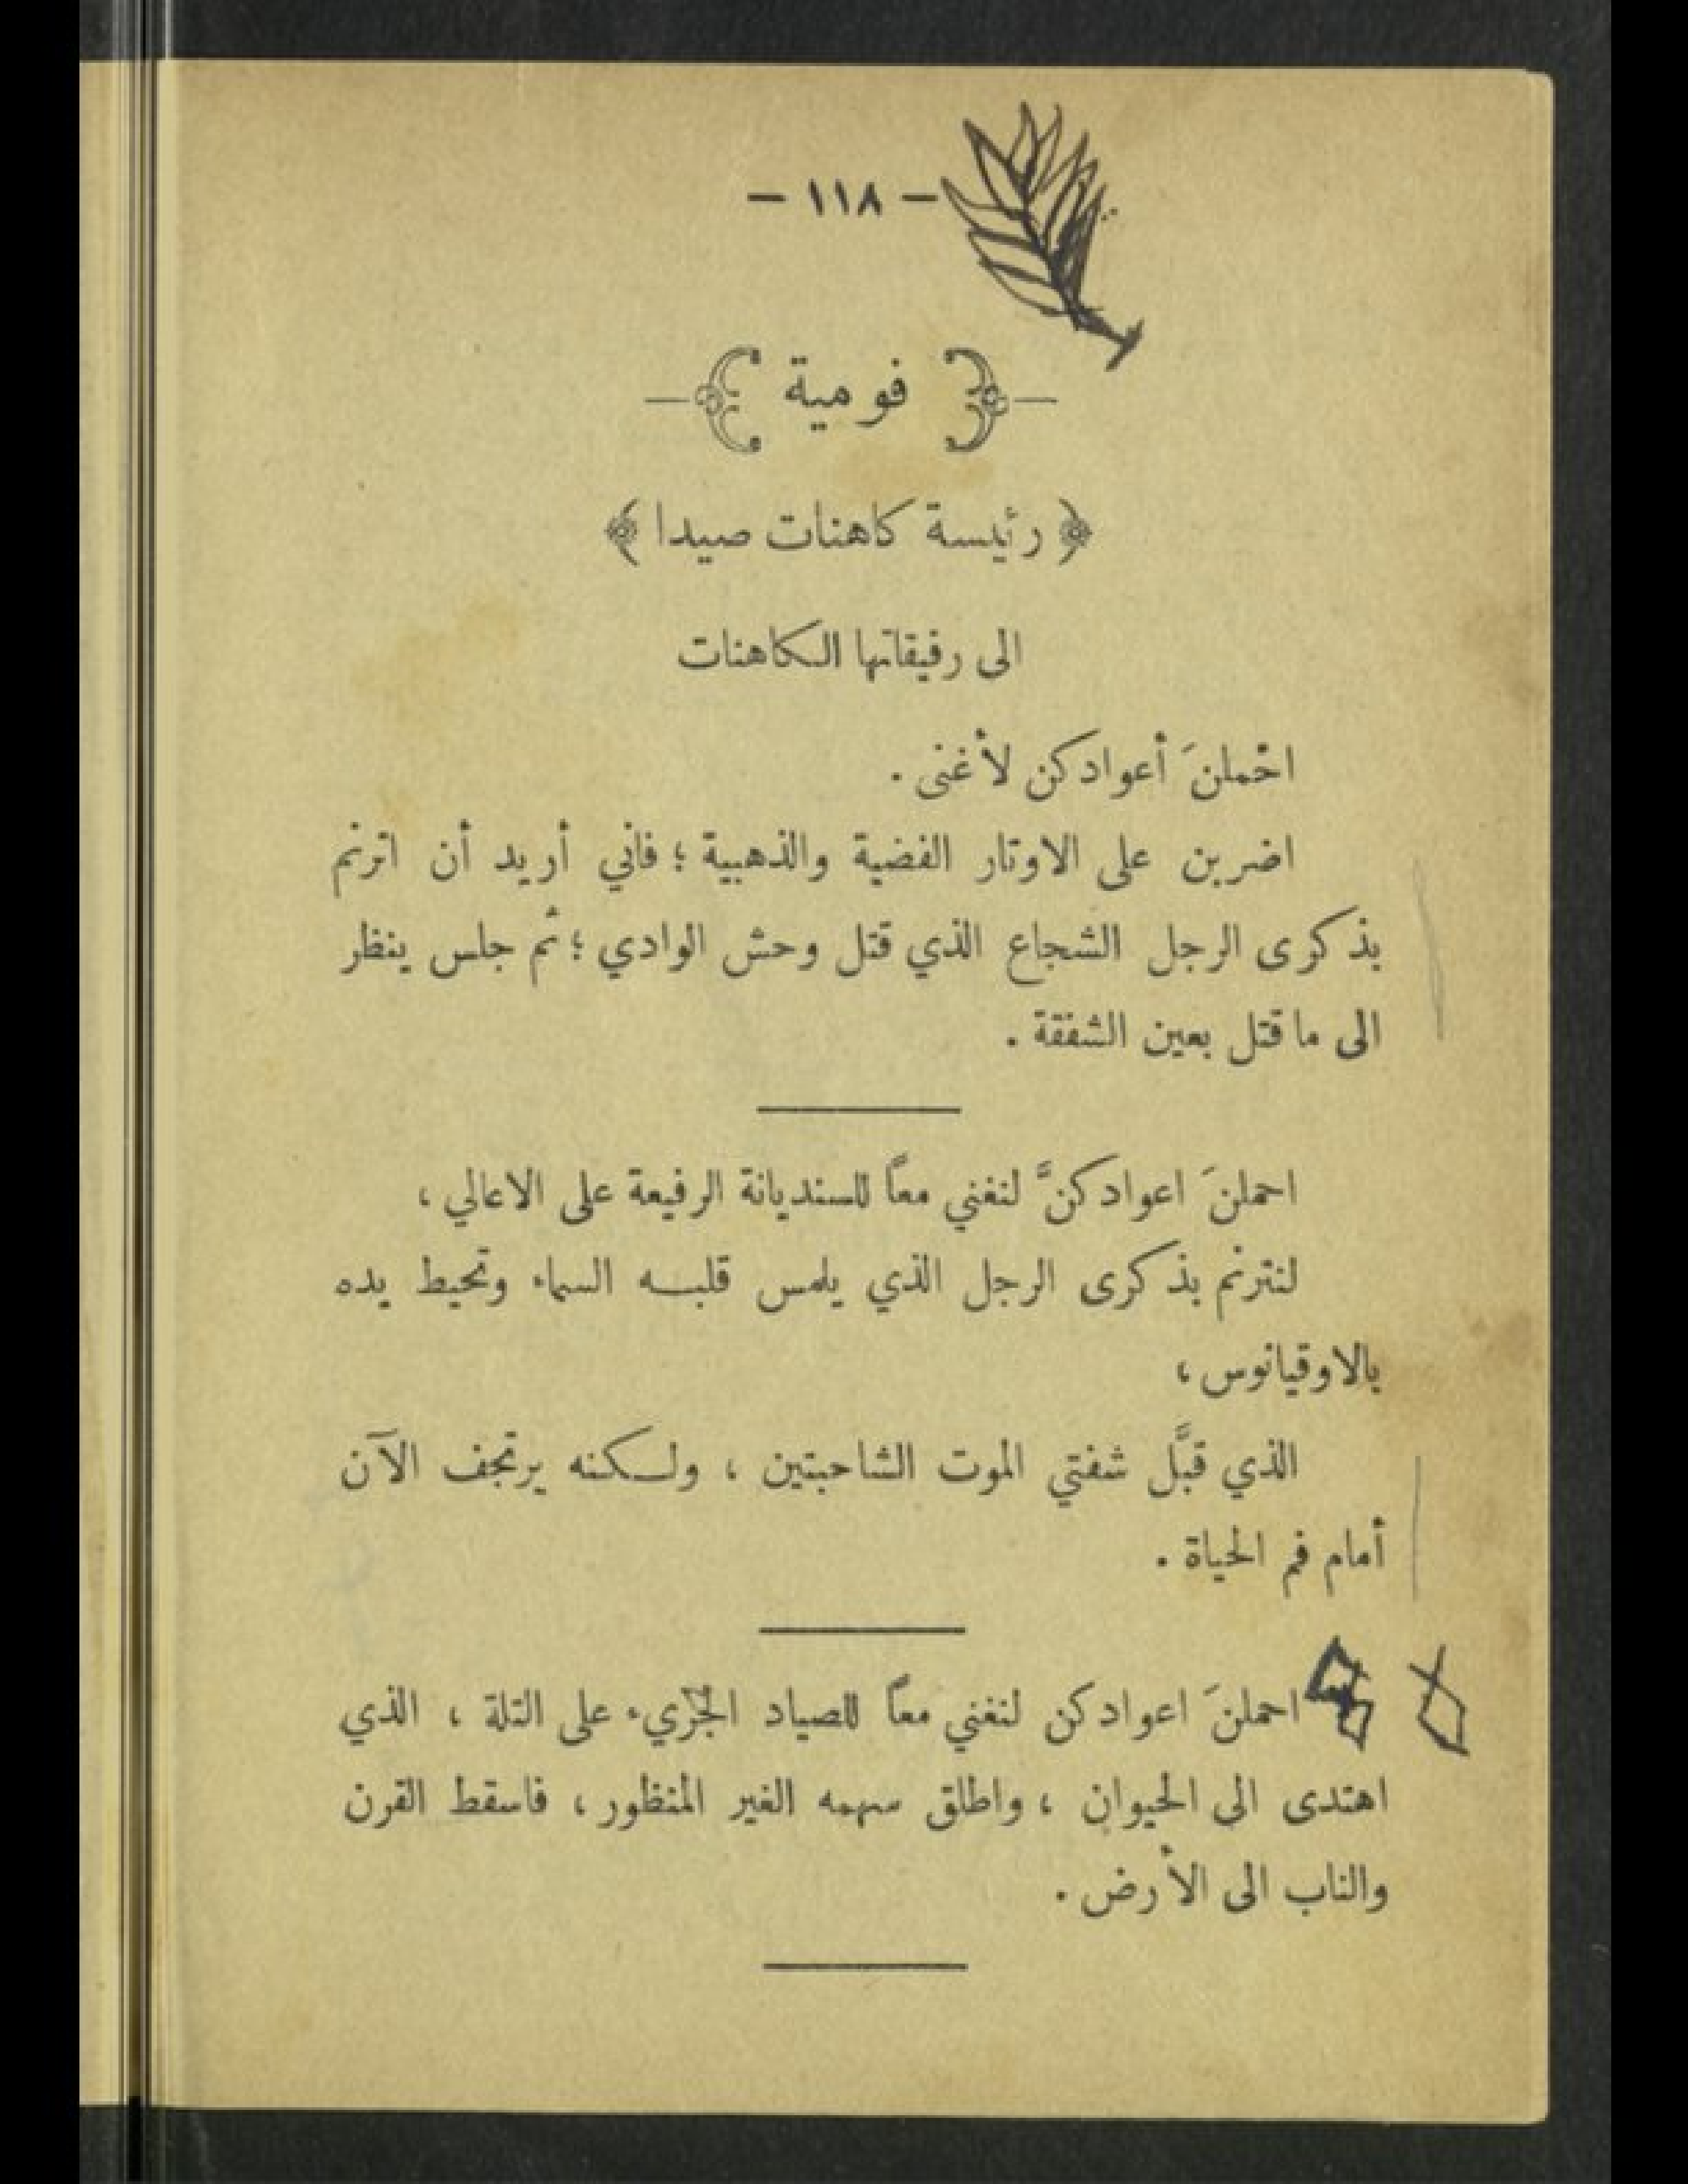 — ١١٨ —
فومية
﴿ رئيسة كاهنات صيدا ﴾
الى رفيقاتها الكاهنات
احْملنَ أعوادكن لأغنى .
اضربن على الاوتار الفضية والذهبية ؛ فاني أريد أن اترنم
بذكرى الرجل الشجاع الذي قتل وحش الوادي ؛ ثم جلس ينظر
الى ما قتل بعين الشفقة .
احملنَ اعوادكنَّ لنغني معاً للسنديانة الرفيعة على الاعالي ،
لنترنم بذكرى الرجل الذي يلمس قلبه السماء وتحيط يده
بالاوقيانوس ،
الذي قبَّل شفتي الموت الشاحبتين ، ولكنه يرتجف الآن
أمام فم الحياة .
احملنَ اعوادكن لنغني معاً للصياد الجرّيء على التلة ، الذي
اهتدى الى الحيوان ، واطلق سهمه الغير المنظور ، فاسقط القرن
والناب الى الأرض .